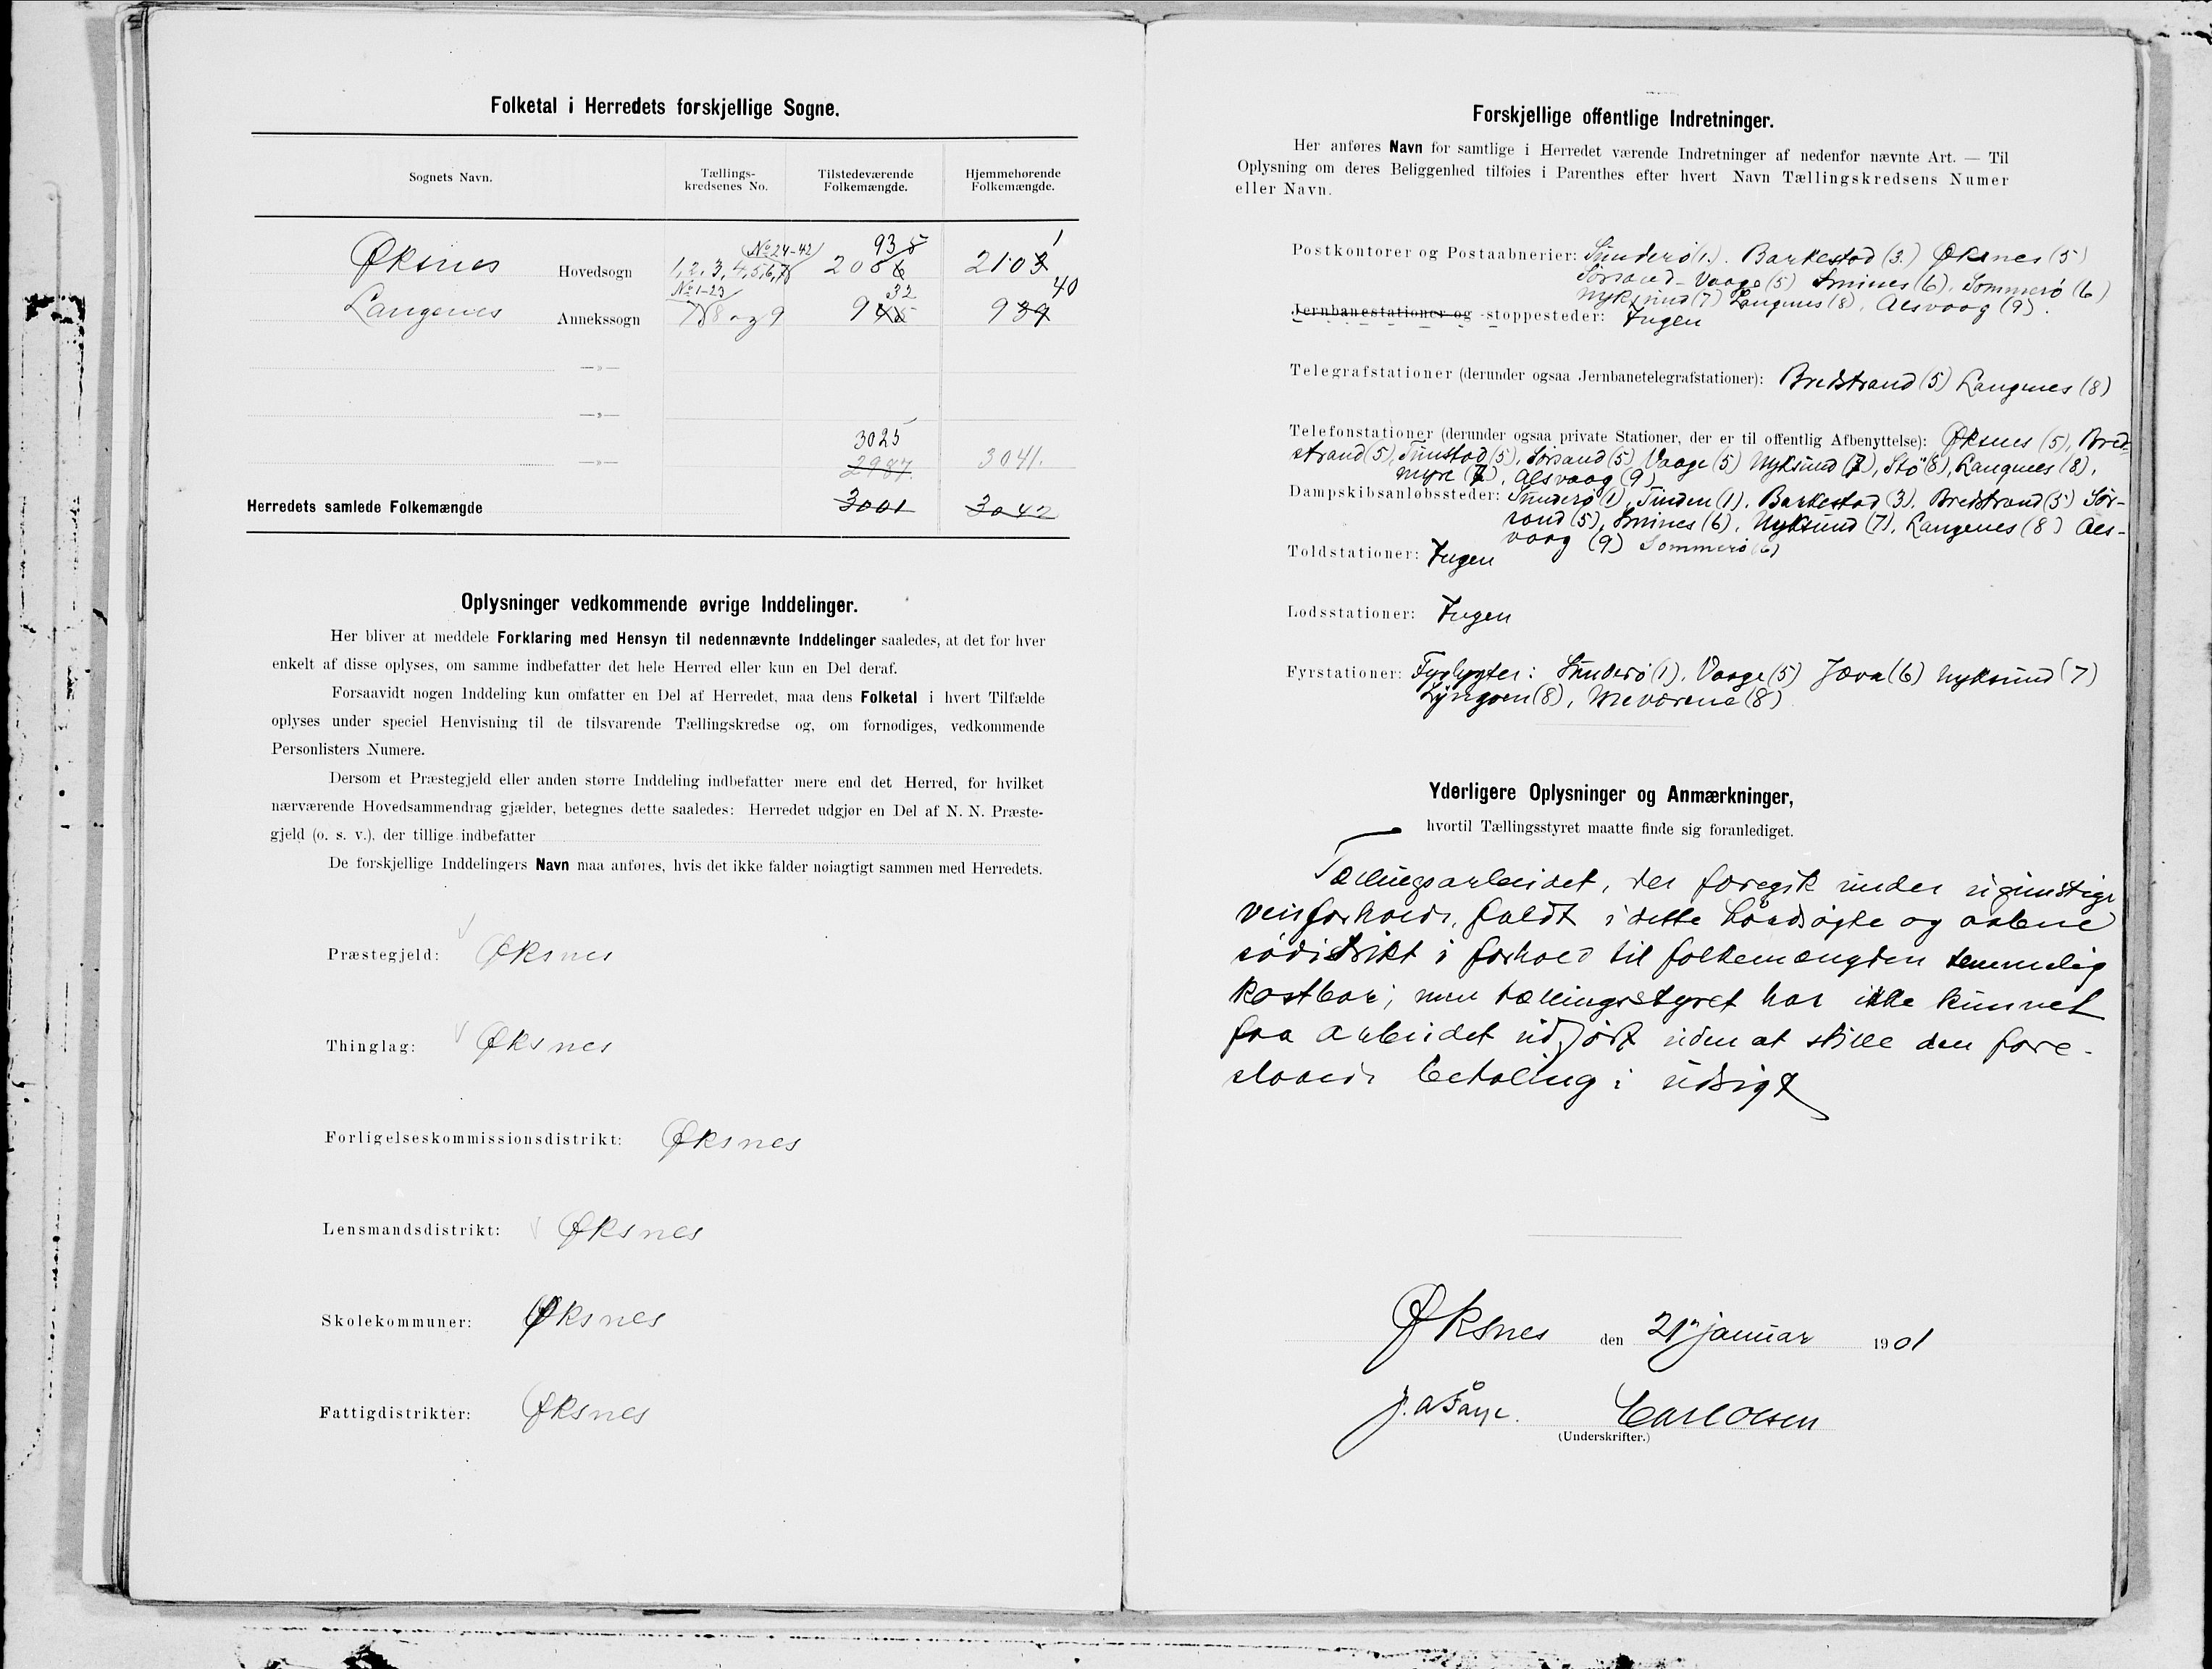 Folketal i Herredets forskjellige Sogne.
Sognets Navn. Tællings-kredsenes No. Tilstedeværende Folkemængde. Hjemmehørende Folkemængde.
No 24-42 93 1
Øksnes Hovedsogn 1, 2, 3, 4, 5, 6, 7 20 210
No 1-23 32 40
Langenes Annekssogn 7 8 og 9 9 939
—»—
—»—
3025
—»— 2987. 3041.
Herredets samlede Folkemængde 3001 3042
Oplysninger vedkommende øvrige Inddelinger.
Her bliver at meddele Forklaring med Hensyn til nedennævnte Inddelinger saaledes, at det for hver
enkelt af disse oplyses, om samme indbefatter det hele Herred eller kun en Del deraf.
Forsaavidt nogen Inddeling kun omfatter en Del af Herredet, maa dens Folketal i hvert Tilfælde
oplyses under speciel Henvisning til de tilsvarende Tællingskredse og, om fornødiges, vedkommende
Personlisters Numere.
Dersom et Præstegjeld eller anden større Inddeling indbefatter mere end det Herred, for hvilket
nærværende Hovedsammendrag gjælder, betegnes dette saaledes: Herredet udgjør en Del af N. N. Præste-
gjeld (o. s. v.), der tillige indbefatter
De forskjellige Inddelingers Navn maa anføres, hvis det ikke falder nøiagtigt sammen med Herredets.
Præstegjeld: Øksnes
Thinglag: Øksnes
Forligelseskommissionsdistrikt: Øksnes
Lensmandsdistrikt: Øksnes
Skolekommuner: Øksnes
Fattigdistrikter: Øksnes
Forskjellige offentlige Indretninger.
Her anføres Navn for samtlige i Herredet værende Indretninger af nedenfor nævnte Art. — Til
Oplysning om deres Beliggenhed tilføies i Parenthes efter hvert Navn Tællingskredsens Numer
eller Navn.
Postkontorer og Postaabnerier: Skinderø (1). Barkestad (3.) Øksnes (5)
Sørsand Vaage (5) Smines (6). Sommerø (6)
Nyksund (7) Langenes (8), Alsvaag (9).
Jernbanestationer og -stoppesteder: Ingen
Telegrafstationer (derunder ogsaa Jernbanetelegrafstationer): Bredstrand (5) Langenes (8)
Telefonstationer (derunder ogsaa private Stationer, der er til offentlig Afbenyttelse): Øksnes (5), Bred-
strand (5), Tunstad (5), Sørsand (5) Vaage (5) Nyksund (7), Stø (8), Langenes (8),
Myre (7), Alsvaag (9)
Dampskibsanløbssteder: (1), Tinden (1). Barkestad (3). Bredstrand (5) Sør-
sand (5), Smines (6). Nyksund (7). Langenes (8) Als-
vaag (9) Sommerø (6)
Toldstationer: Ingen
Lodsstationer: Ingen
Fyrstationer: Fyrlygter: (1). Vaage (5) (6) Nyksund (7)
(8), (8)
Yderligere Oplysninger og Anmærkninger,
hvortil Tællingsstyret maatte finde sig foranlediget.
Tællingsarbeidet, der foregik under ugunstige
veirforholde, faldt i dette haardsøgte og aabne
sødistrikt i forhold til folkemængden temmelig
kostbar; men tællingsstyret har ikke kunnet
faa arbeidet udført uden at stille den fore-
slaaede betaling i udsigt
Øksnes den 21 januar 1901
Carl Olsen
(Underskrifter.)